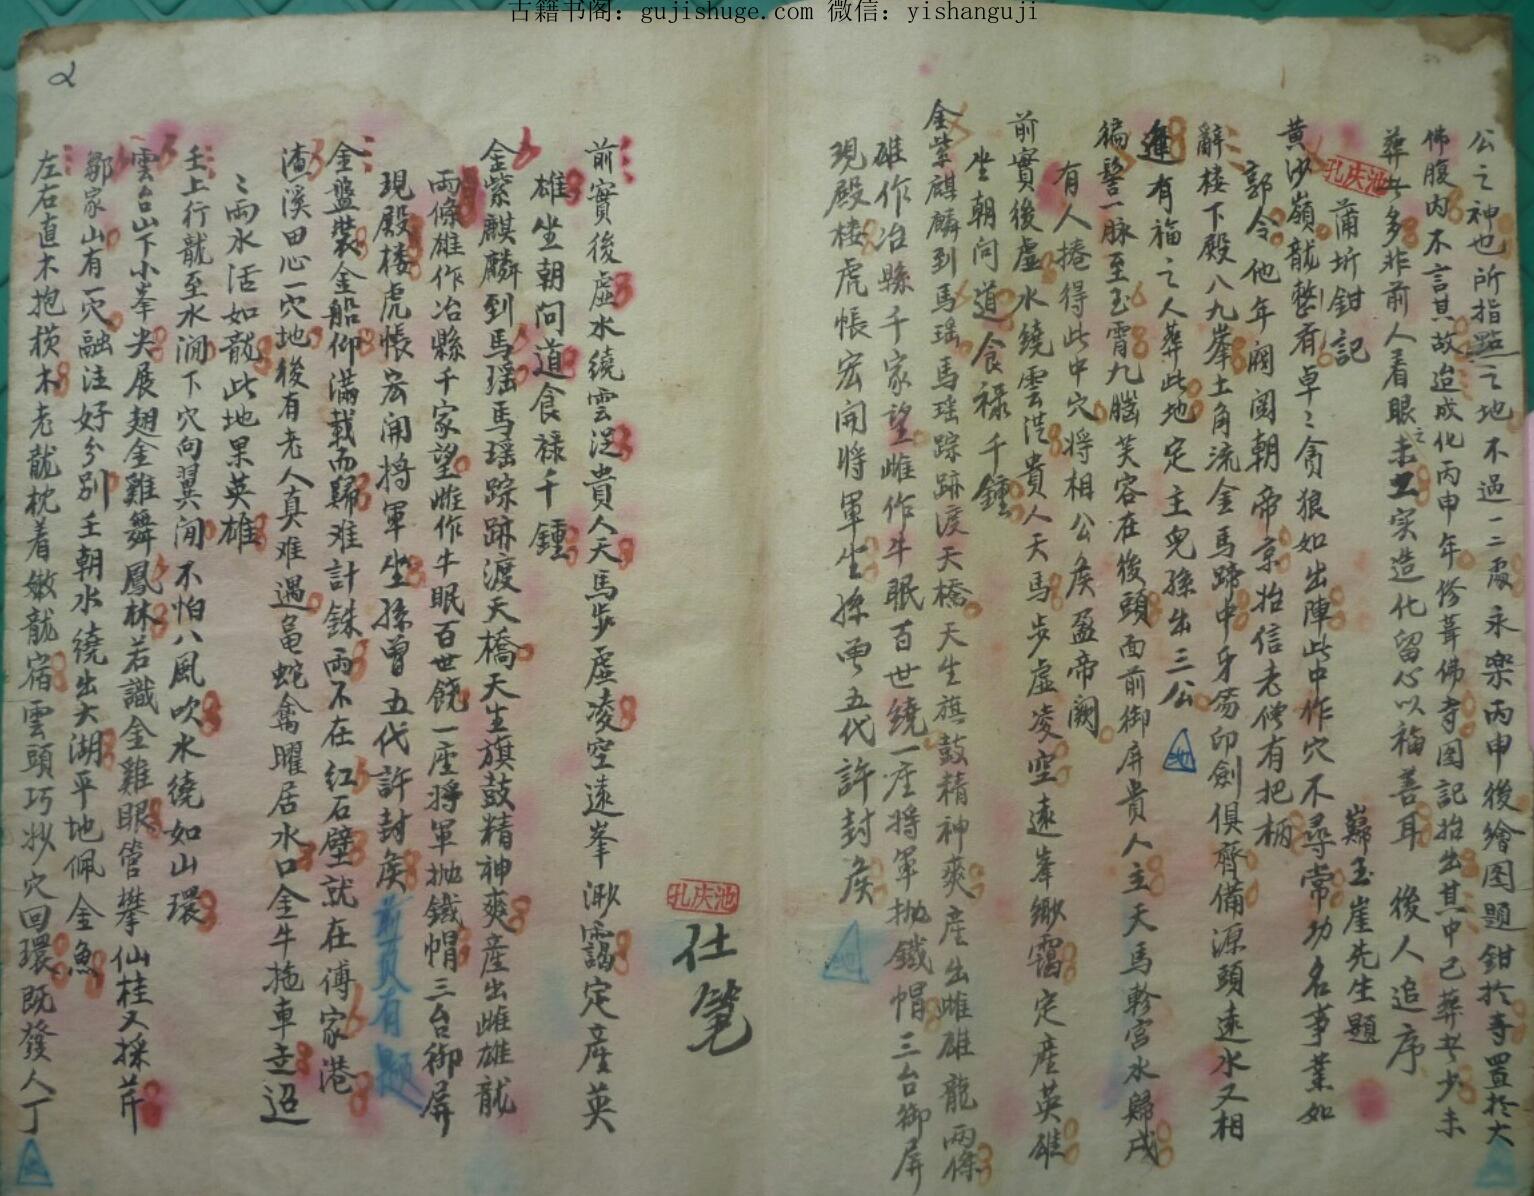 古籍书阁：gujishuge.com 微信：yishanguji
公之神也所指點之地不過一二處永樂丙申後繪图題鉗於寺置於大
佛腹内不言其故迨成化丙申年修葺佛寺图記抬出其中已葬者少未
葬者多非前人着眼之未工实造化留心以福善耳 後人追序
孔庆池
蒲圻鉗記 歸玉崖先生題
黄沙嶺龍整有卓〻貪狼如出陣此中作穴不尋常功名事業如
郭令他年閥閲朝帝京抬信老僧有把柄
辭楼下殿八九峯土角流金馬蹄中牙笏印劍俱齊備源頭遠水又相
逢有福之人葬此地定主兒孫出三公
地
福鰲一脉至玉霄九腦芙容在後頭面前御屏貴人主天馬軫宫水歸戌
有人捲得此中穴將相公矦盈帝闕
前實後虚水繞雲從貴人天馬步虚凌空遠峯緲靄定産英雄
坐朝问道食禄千鍾
金紫麒麟到馬瑶馬瑶踪跡渡天橋天生旗鼓精神爽産出雌雄龍兩條
雄作冶縣千家望雌作牛眠百世繞一座将軍抛鐵帽三台御屏
現殿楼虎帳宏開將軍坐孫曾五代許封矦
地
孔庆池
仕笔
前實後虚水繞雲從貴人天馬步虚凌空遠峯渺靄定産英
雄坐朝问道食禄千鍾
金紫麒麟到馬瑶馬瑶踪跡渡天橋天生旗鼓精神爽産出雌雄龍
兩條雄作冶縣千家望雌作牛眠百世饒一座將軍抛鐵帽三台御屏
現殿楼虎帳宏開將軍坐孫曾五代許封矦前頁有題
金盤裝金船仰滿載而歸难計銖兩不在红石壁就在傅家港
渣溪田心一穴地後有老人真难遇黾蛇禽曜居水口金牛拖車去迢
〻兩水活如龍此地果英雄
壬上行龍至水澗下穴向翼间不怕八風吹水繞如山環
雲台山下小峯尖展翅金雞舞鳳林若識金雞眼管攀仙桂又採芹
鄒家山有一穴融注好分别壬朝水繞出大湖平地佩金魚
左右直木抱横木老龍枕着嫩龍宿雲頭巧妙穴回環既發人丁
地